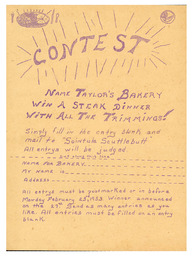 CONTEST
NAME TAYLOR'S BAKERY
WIN A STEAK DINNER
WITH ALL THE TRIMMINGS!
Simply fill in the entry blank and
mail to Saintute Scuttlebutt
All entrys will be judged.
NAME FOR BAKERY
My name is
Address
All entrys must be postmarked on or before
Monday February 23, 1953. Winner announced
Send as many entries as you
like. All entries must be filled on an entry
blank